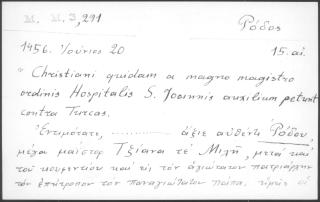 M. M. 3, 291
Ρόδος
1456. Ἰούνιος 20
15. αἰ.
"Christiani quidam a magno magistro
ordinis Hospitalis S. Joannis auxilium petunt
contra Turcas.
Ἐντιμότατε, ............ ἄξιε αὐθέντη Ῥόδου,
μέγα μαίστορ Τζιάνα τὲ Μιλή, μετὰ καὶ
τοῦ κουμεντίου καὶ εἰς τὸν ἁγιώτατον πατριάρχην
τὸν ἐπίτροπον τοῦ παναγιωτάτου πάπα. ἡμεῖς οἱ